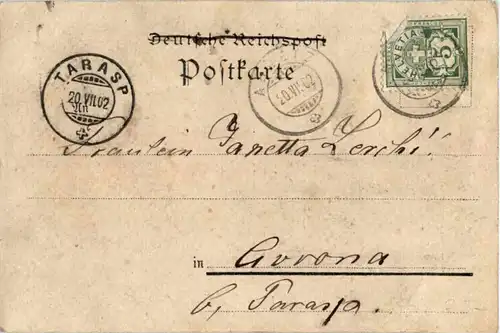 Deutsche Reichspost
Postkarte
TARASP
20.VII.02
20.VII.02
HELVETIA
5
Fräulein Zanetta
in Avrona
b. Tarasp.